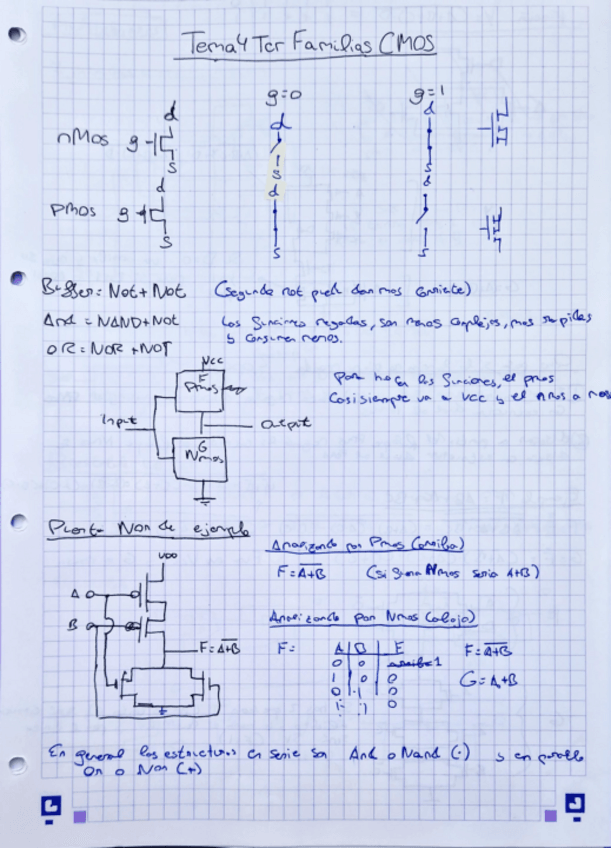 Tema 4 Tcr Familias CMOS
g=0
g=1
d
d
d
nMos g
s
s
s
d
d
d
pMos g
s
s
s
Buffer = Not + Not (segunda not puede dar mas corriente)
And = NAND + Not Las funciones negadas, son menos complejas, mas rapidas
OR = NOR + NOT y consumen menos.
Vcc
F
Pmos
Para hacer las funciones, el pmos
casi siempre va a Vcc y el nmos a
Input
Output
G
Nmos
Puerta Nor de ejemplo
Analizando por Pmos (arriba)
VDD
F = A+B (si fuera Nmos seria A+B)
A
B
Analizando por Nmos (abajo)
F = A+B
F = A B F F = A+B
0 0 1
1 0 0 G = A+B
0 1 0
1 1 0
En general las estructuras en serie son And o Nand (·) y en paralelo
Or o Nor (+)